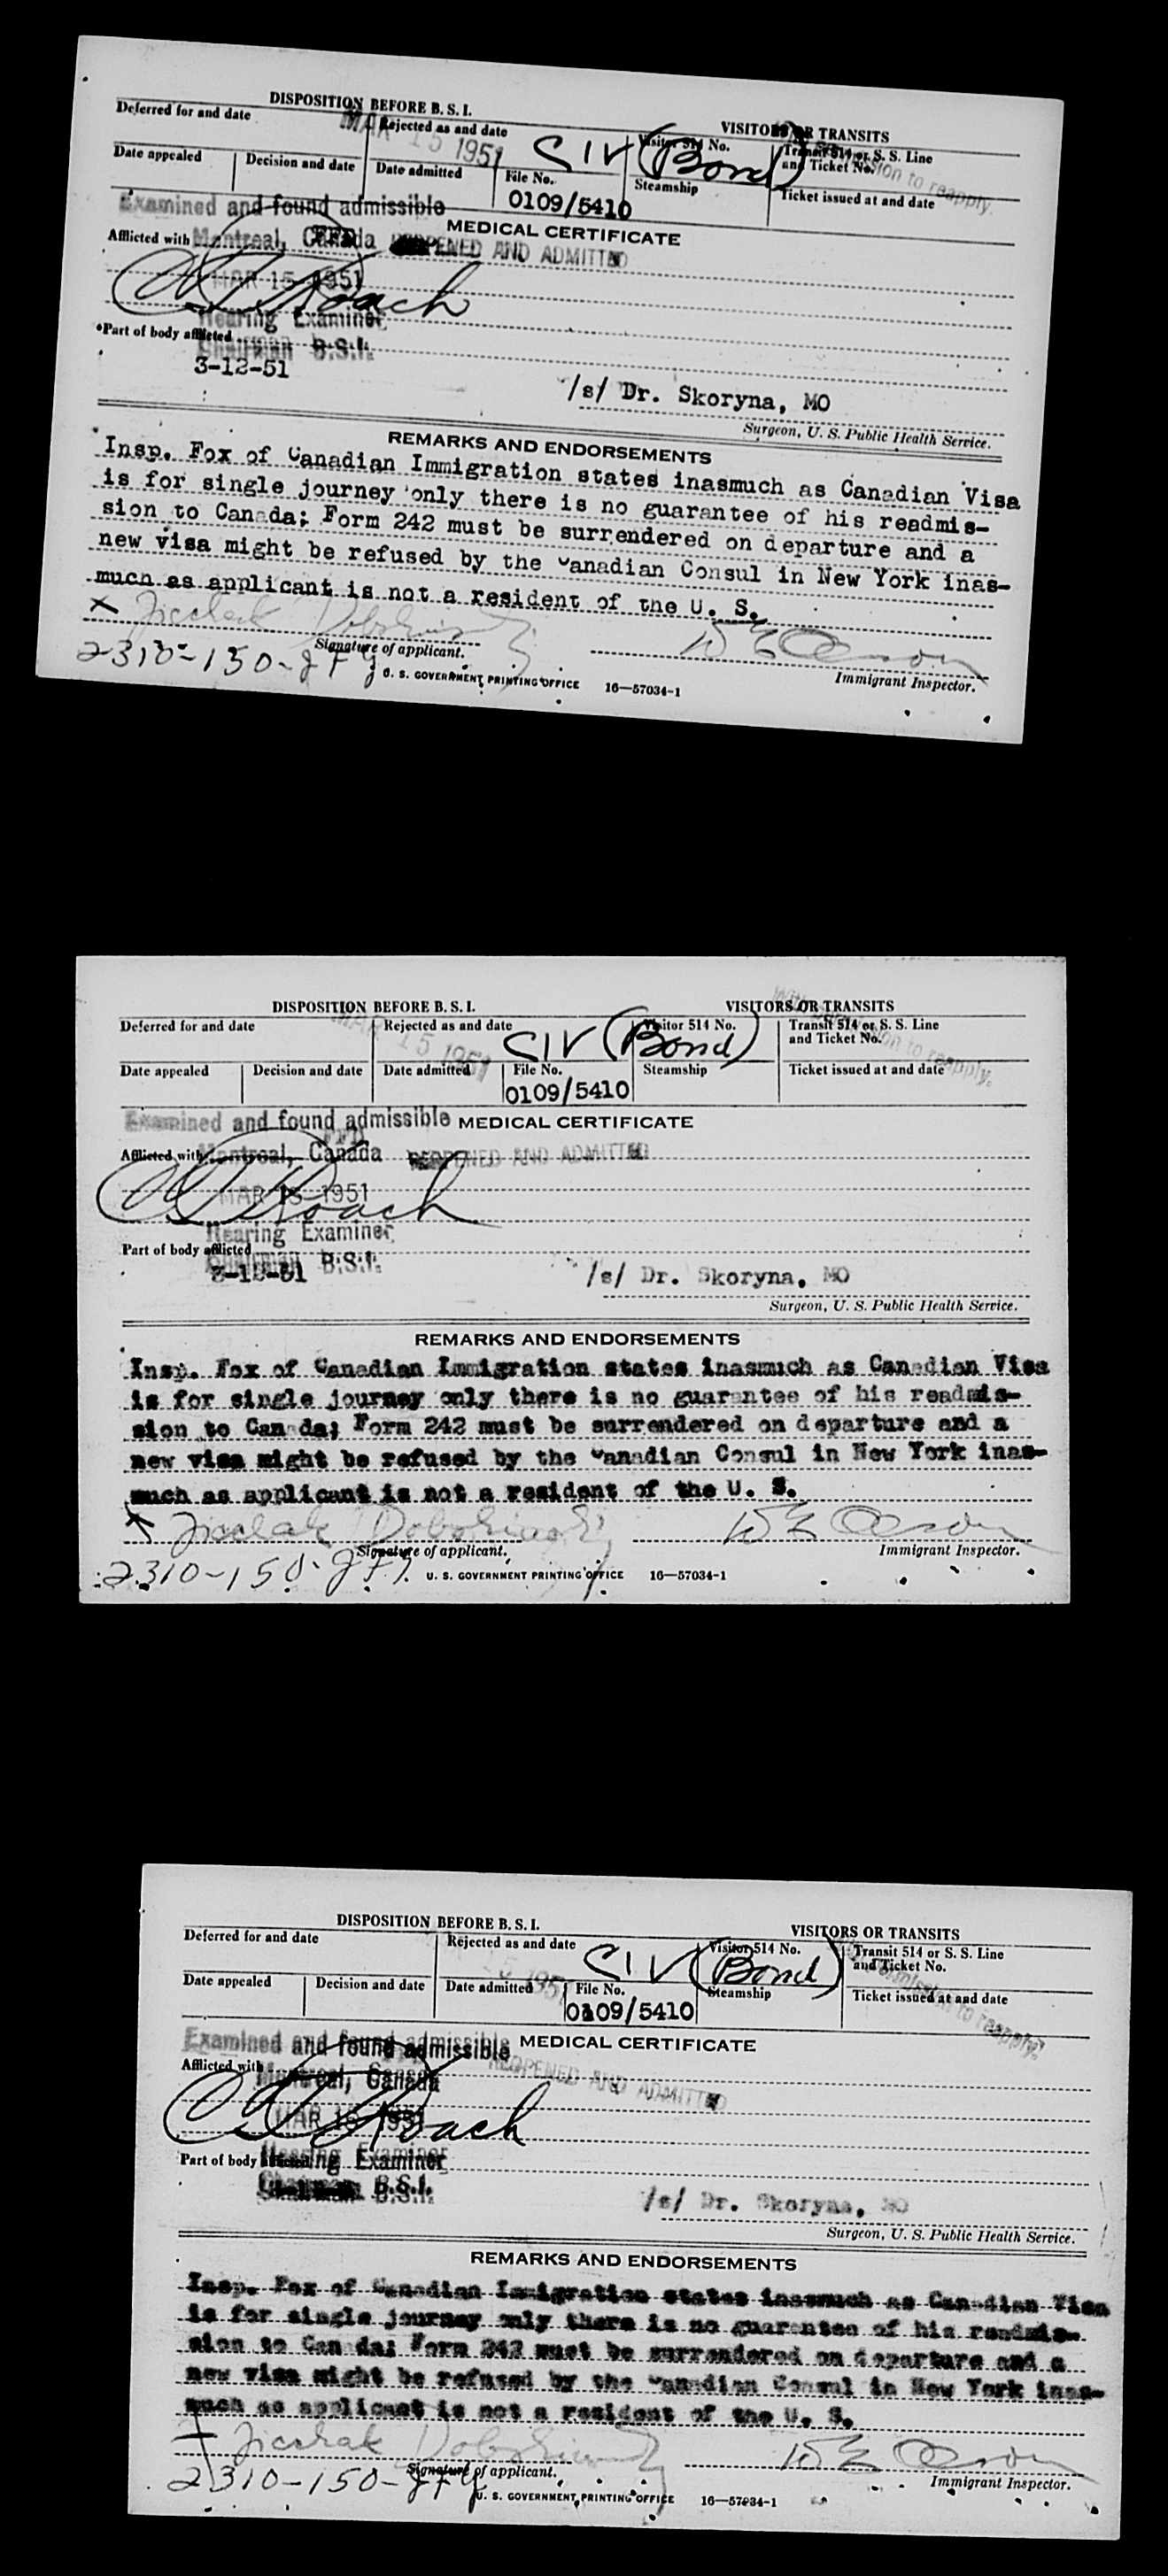 DISPOSITION BEFORE B. S. I.
VISITORS OR TRANSITS
Deferred for and date
Rejected as and date
MAR 15 1951
SIV (Bond)
Visitor 514 No.
Transit 514 or S. S. Line
and Ticket No.
to reapply.
Date appealed
Decision and date
Date admitted
File No.
0109/5410
Steamship
Ticket issued at and date
Examined and found admissible
MEDICAL CERTIFICATE
Afflicted with
Montreal, Canada
REOPENED AND ADMITTED
MAR 15 1951
Roach
Hearing Examiner
*Part of body afflicted
Chairman B.S.I.
3-12-51
/s/ Dr. Skoryna, MO
Surgeon, U. S. Public Health Service.
REMARKS AND ENDORSEMENTS
Insp. Fox of Canadian Immigration states inasmuch as Canadian Visa
is for single journey only there is no guarantee of his readmis-
sion to Canada; Form 242 must be surrendered on departure and a
new visa might be refused by the Canadian Consul in New York inas-
much as applicant is not a resident of the U. S.
X
Signature of applicant.
Immigrant Inspector.
2310-150-
U. S. GOVERNMENT PRINTING OFFICE 16—57034-1
DISPOSITION BEFORE B. S. I.
VISITORS OR TRANSITS
Deferred for and date
Rejected as and date
MAR 15 1951
SIV (Bond)
Visitor 514 No.
Transit 514 or S. S. Line
and Ticket No.
to reapply.
Date appealed
Decision and date
Date admitted
File No.
0109/5410
Steamship
Ticket issued at and date
Examined and found admissible
MEDICAL CERTIFICATE
Afflicted with
Montreal, Canada
REOPENED AND ADMITTED
MAR 15 1951
Roach
Hearing Examiner
Part of body afflicted
Chairman B.S.I.
3-12-51
/s/ Dr. Skoryna, MO
Surgeon, U. S. Public Health Service.
REMARKS AND ENDORSEMENTS
Insp. Fox of Canadian Immigration states inasmuch as Canadian Visa
is for single journey only there is no guarantee of his readmis-
sion to Canada; Form 242 must be surrendered on departure and a
new visa might be refused by the Canadian Consul in New York inas-
much as applicant is not a resident of the U. S.
X
Signature of applicant.
Immigrant Inspector.
2310-150-
U. S. GOVERNMENT PRINTING OFFICE 16—57034-1
DISPOSITION BEFORE B. S. I.
VISITORS OR TRANSITS
Deferred for and date
Rejected as and date
SIV (Bond)
Visitor 514 No.
Transit 514 or S. S. Line
and Ticket No.
permission to reapply.
Date appealed
Decision and date
Date admitted
File No.
0109/5410
Steamship
Ticket issued at and date
Examined and found admissible
MEDICAL CERTIFICATE
Afflicted with
Montreal, Canada
REOPENED AND ADMITTED
MAR 15 1951
Roach
Hearing Examiner
Part of body afflicted
Chairman B.S.I.
/s/ Dr. Skoryna, MO
Surgeon, U. S. Public Health Service.
REMARKS AND ENDORSEMENTS
Insp. Fox of Canadian Immigration states inasmuch as Canadian Visa
is for single journey only there is no guarantee of his readmis-
sion to Canada; Form 242 must be surrendered on departure and a
new visa might be refused by the Canadian Consul in New York inas-
much as applicant is not a resident of the U. S.
Signature of applicant.
Immigrant Inspector.
2310-150-
U. S. GOVERNMENT PRINTING OFFICE 16—57034-1